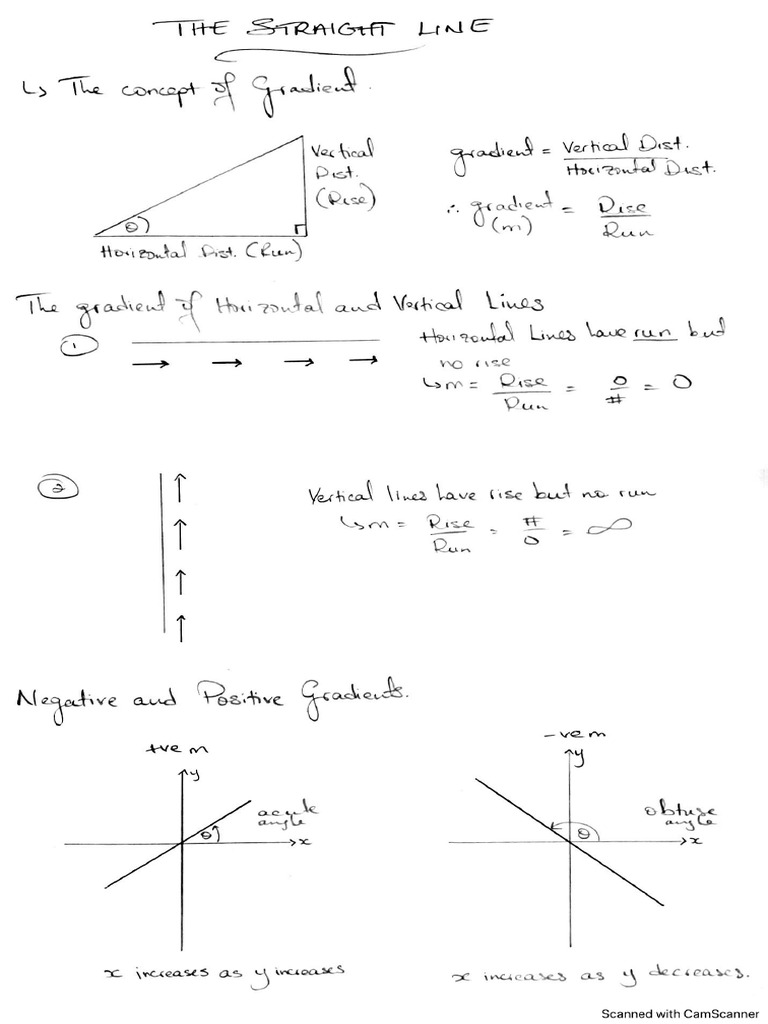 THE STRAIGHT LINE
↳ The concept of Gradient.
Vertical
Dist.
(Rise)
θ
Horizontal Dist. (Run)
gradient = Vertical Dist.
Horizontal Dist.
∴ gradient = Rise
(m) Run
The gradient of Horizontal and Vertical Lines
1
Horizontal Lines have run but
no rise
↳ m = Rise = 0 = 0
Run #
2
Vertical lines have rise but no run
↳ m = Rise = # = ∞
Run 0
Negative and Positive Gradients.
+ve m
y
acute
angle
θ
x
x increases as y increases
-ve m
y
obtuse
angle
θ
x
x increases as y decreases.
Scanned with CamScanner